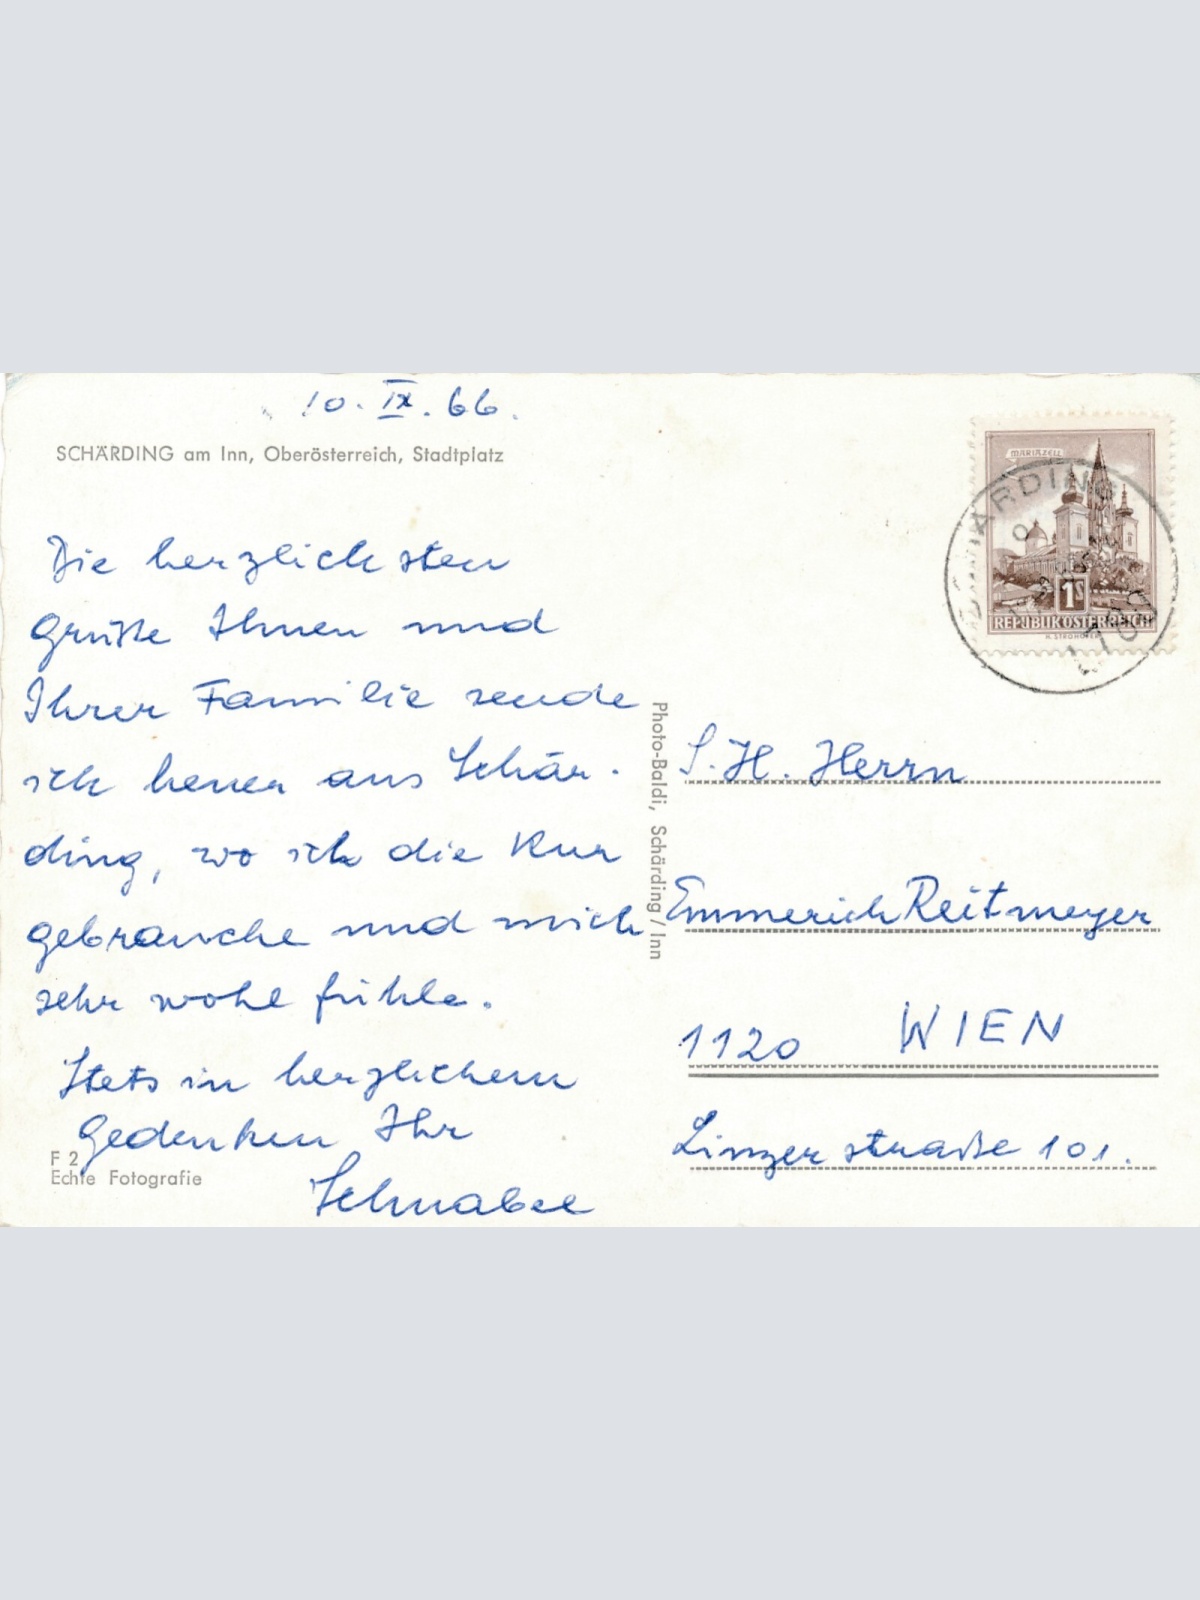 10. IX. 66.
SCHÄRDING am Inn, Oberösterreich, Stadtplatz
Die herzlichsten
Grüße Ihnen und
Ihrer Familie sende
ich heuer aus Schär-
ding, wo ich die Kur
gebrauche und mich
sehr wohl fühle.
Stets in herzlichem
Gedenken Ihr
Schnabel
F 2
Echte Fotografie
Photo-Baldi, Schärding/Inn
MARIAZELL
1S
REPUBLIK ÖSTERREICH
H. STROHOFER
S. H. Herrn
Emmerich Reitmeyer
1120 WIEN
Linzerstraße 101.